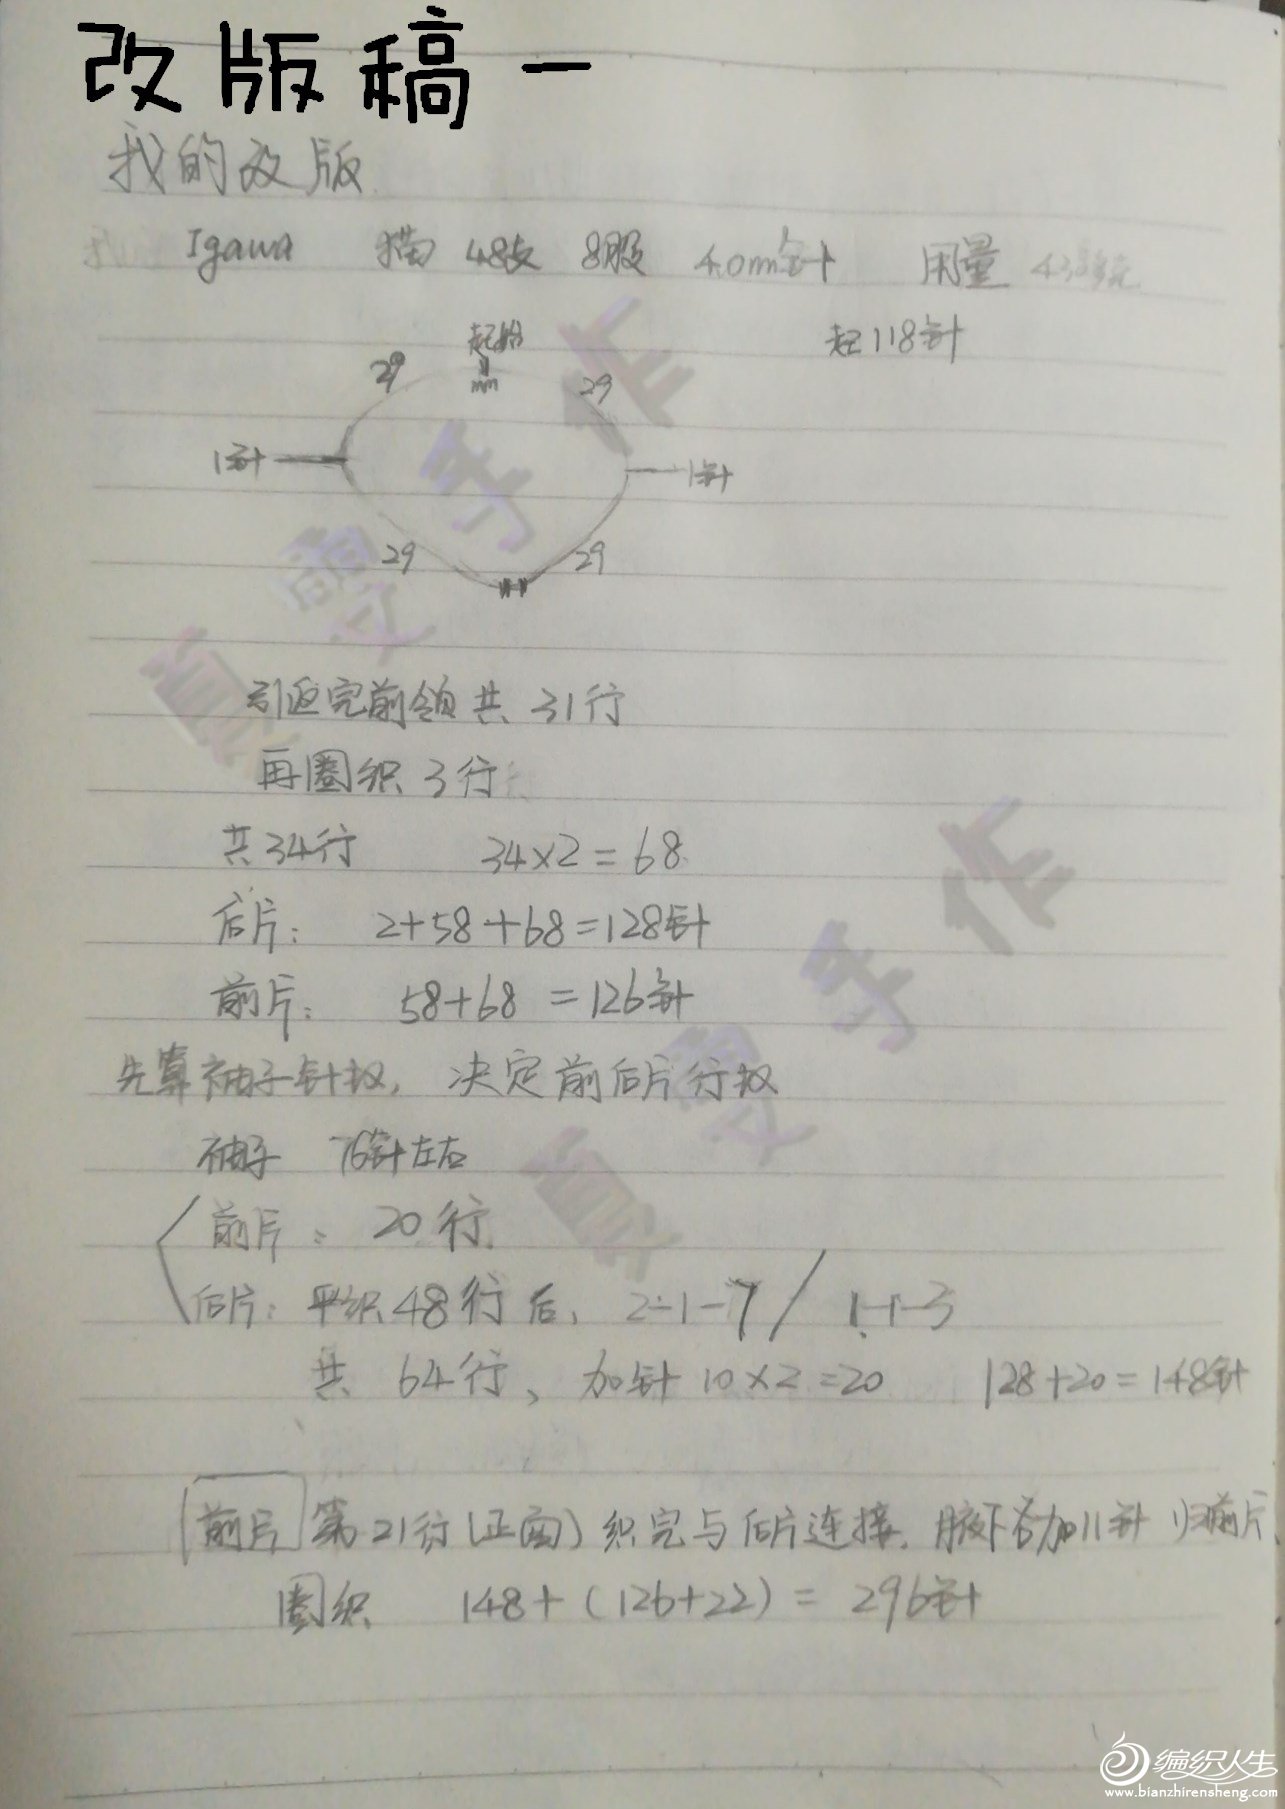 改版稿一
我的改版
Igawa 猫 48支 8股 4.0mm针 用量
起始
起118针
29 29
1针 1针
29 29
引返完前领共31行
再圈织3行
共34行 34×2=68
后片: 2+58+68=128针
前片: 58+68=126针
先算袖子针数, 决定前后片行数
袖子 76针左右
前片: 20行
后片: 平织48行后, 2-1-7/1-1-3
共64行、加针10×2=20 128+20=148针
前片 第21行(正面)织完与后片连接, 腋下各加11针 归前片
圈织 148+(126+22)=296针
夏雯手作
夏雯手作
编织人生
www.bianzhirensheng.com